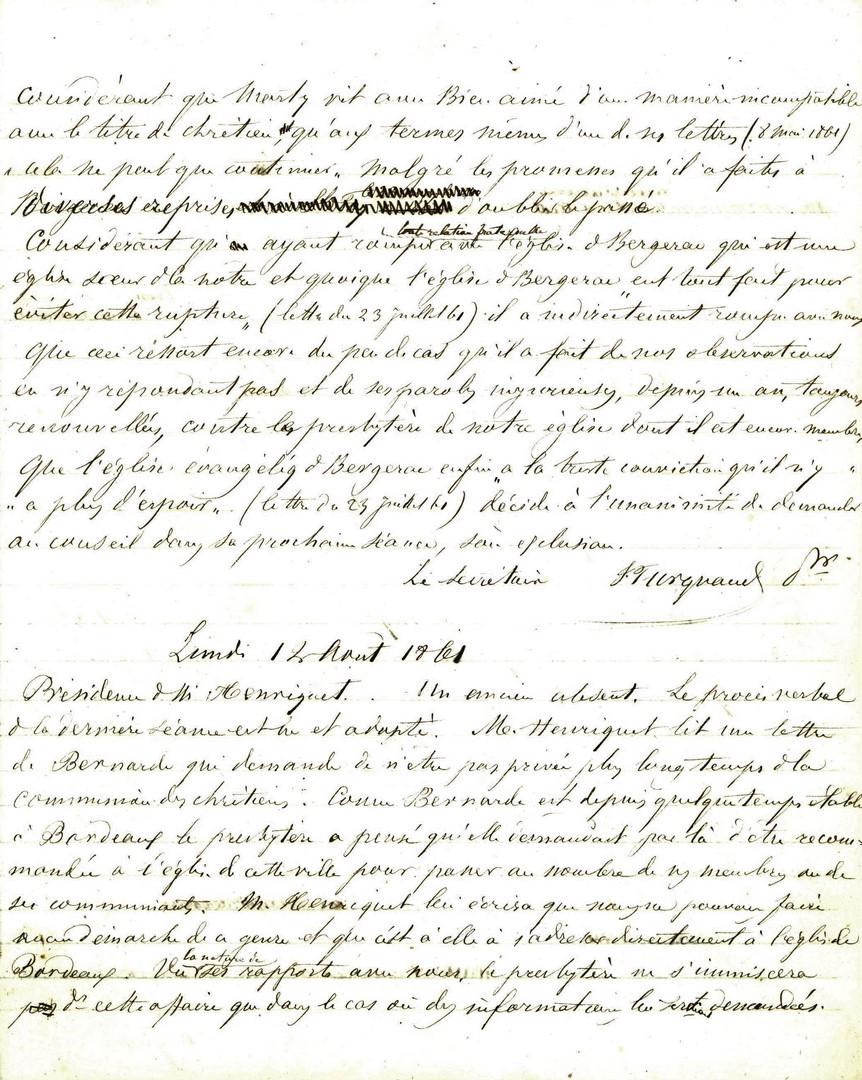 Considérant que Marty vit avec Bien aimé d'une manière incompatible
avec le titre de chrétien, qu'aux termes mêmes d'une de ses lettres (8 mai 1861)
" cela ne peut que continuer " malgré les promesses qu'il a faites à
diverses reprises d'oublier le passé.
Considérant qu'ayant rompu toute relation fraternelle avec l'église d Bergerac qui est une
église sœur d la notre et quoique l'église d Bergerac eut tout fait pour
éviter cette rupture " (lettre du 23 juillet 61) il a indirectement rompu avec nous
Que ceci ressort encore du peu de cas qu'il a fait de nos observations
en n'y répondant pas et de ses paroles injurieuses, depuis un an, toujours
renouvellées, contre le presbytère de notre église dont il est encore membre,
Que l'église évangéliq d Bergerac enfin " a la triste conviction qu'il n'y "
" a plus d'espoir ". (lettre du 23 juillet 61) décide à l'unanimité de demander
au conseil dans sa prochaine séance, son exclusion.
Le secrétaire J. Turgnaud
Lundi 12 Août 1861
Présidence d M. Henriquet. Un ancien absent. Le procès verbal
d la dernière séance est lu et adopté. M. Henriquet lit une lettre
de Bernarde qui demande de n'être pas privée plus longtemps d la
communion des chrétiens. Comme Bernarde est depuis quelque temps établie
à Bordeaux le presbytère a pensé qu'elle demandait par là d'être recom-
mandée à l'église de cette ville pour passer au nombre de ses membres ou de
ses communiants. M. Henriquet lui écrira que nous ne pouvons faire
aucune démarche de ce genre et que c'est à elle à s'adresser directement à l'église de
Bordeaux. Vu la nature de ses rapports avec nous, le presbytère ne s'immiscera
ds cette affaire que dans le cas où des informations lui seraient demandées.